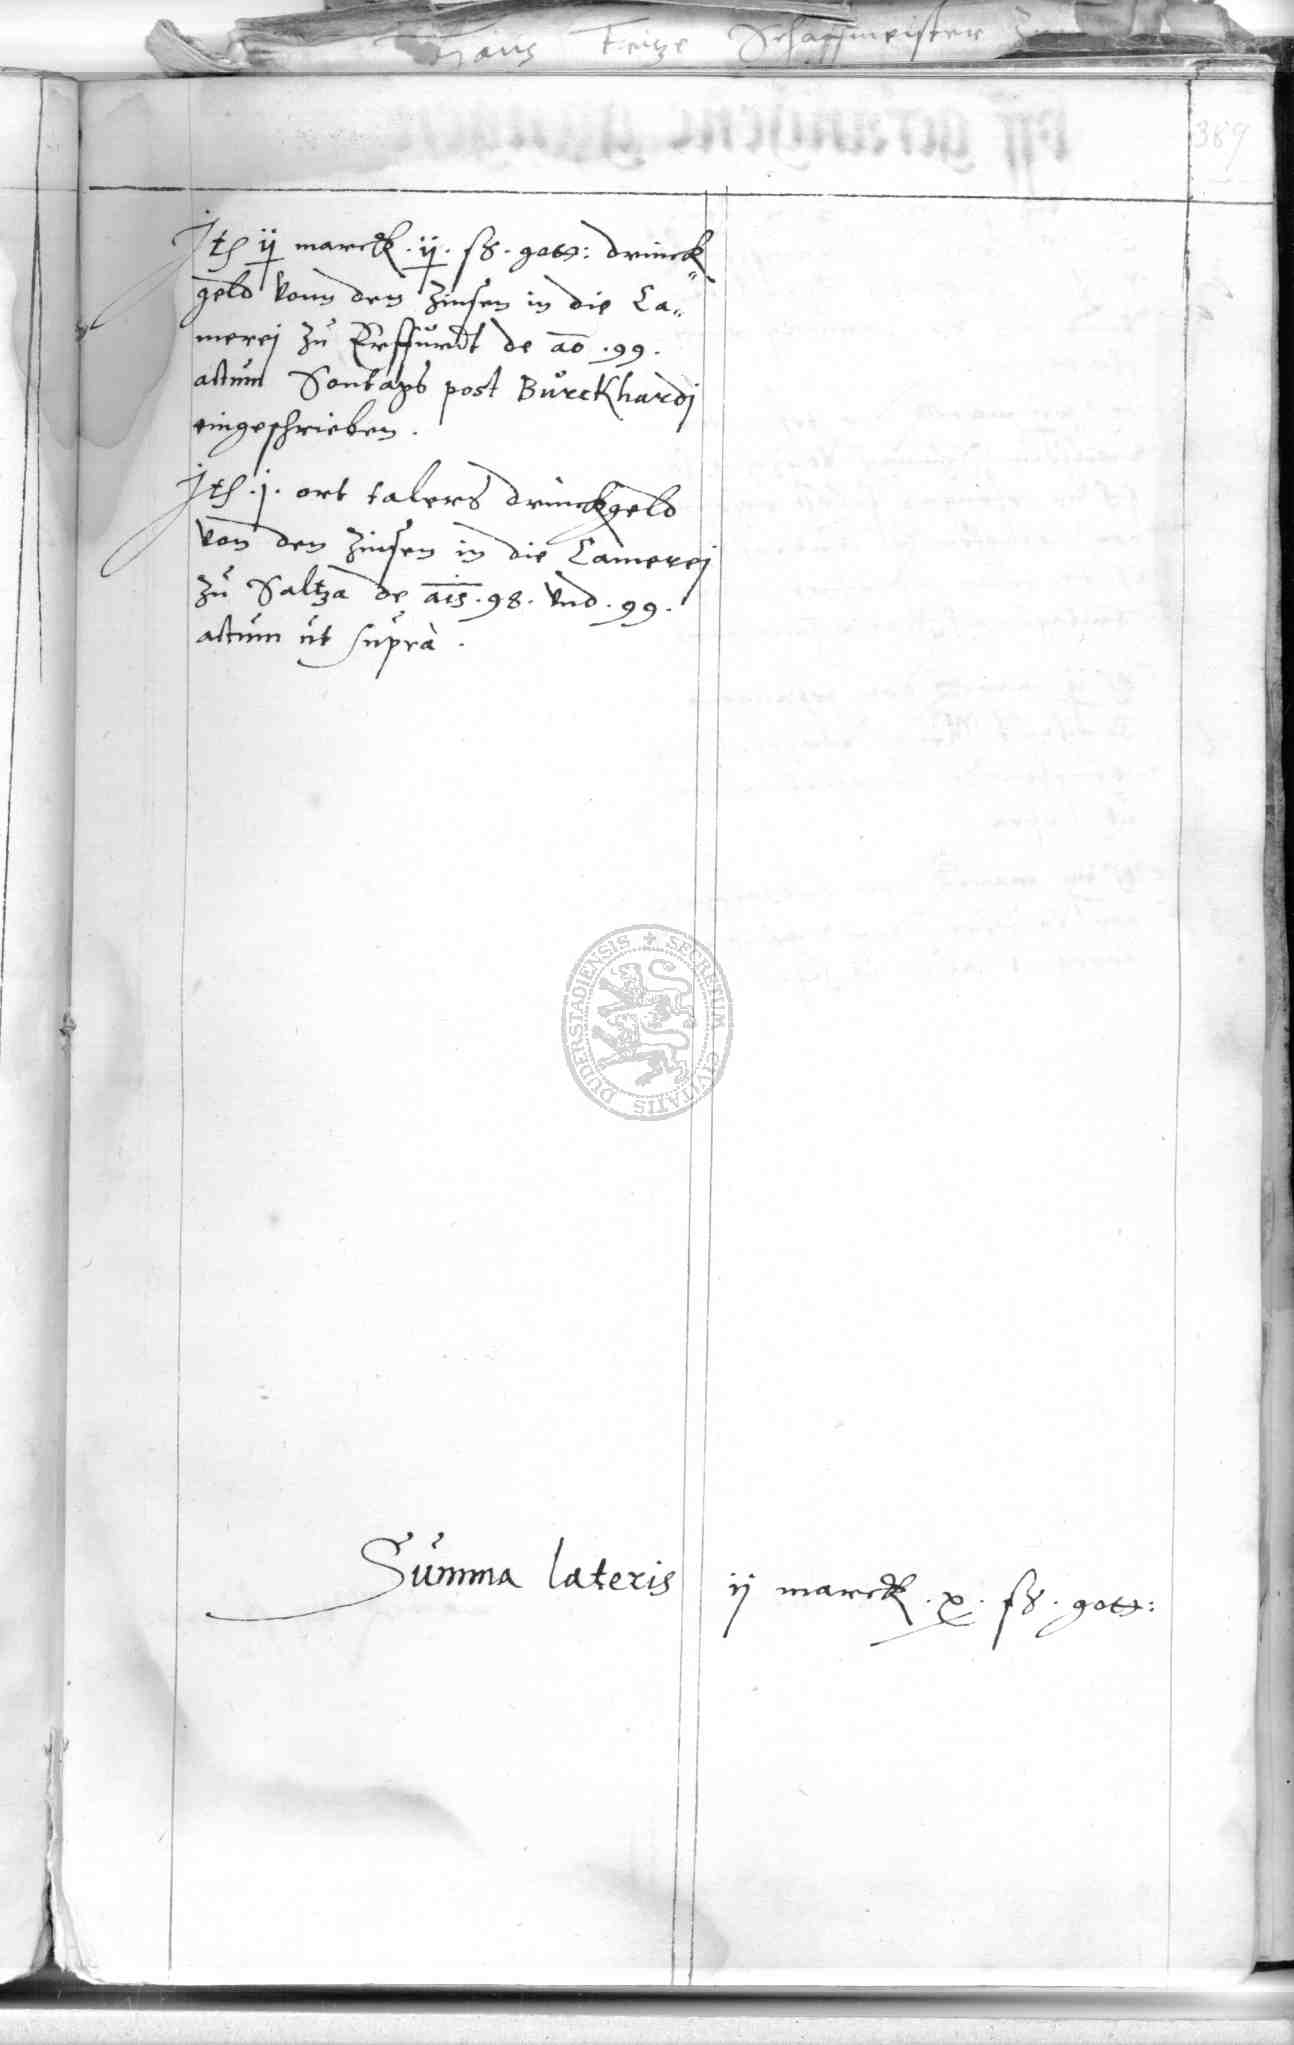 Hans Fritze Schaffmeister
389
Jtem ij marck . ij . ß . gott: drinck„
geld vonn den Zinsen in die Ca„
merej zu Erffurdt de ao . 99 .
actum Sontags post Burckhardj
eingeschrieben .
Jtem . j . ort talers drinckgeld
von den Zinsen in die Camerej
zu Saltza de ais . 98 . vnd . 99 .
actum ut supra .
SECRETUM CIVITATIS DUDERSTADIENSIS
Summa lateris ij marck . x . ß . gott: